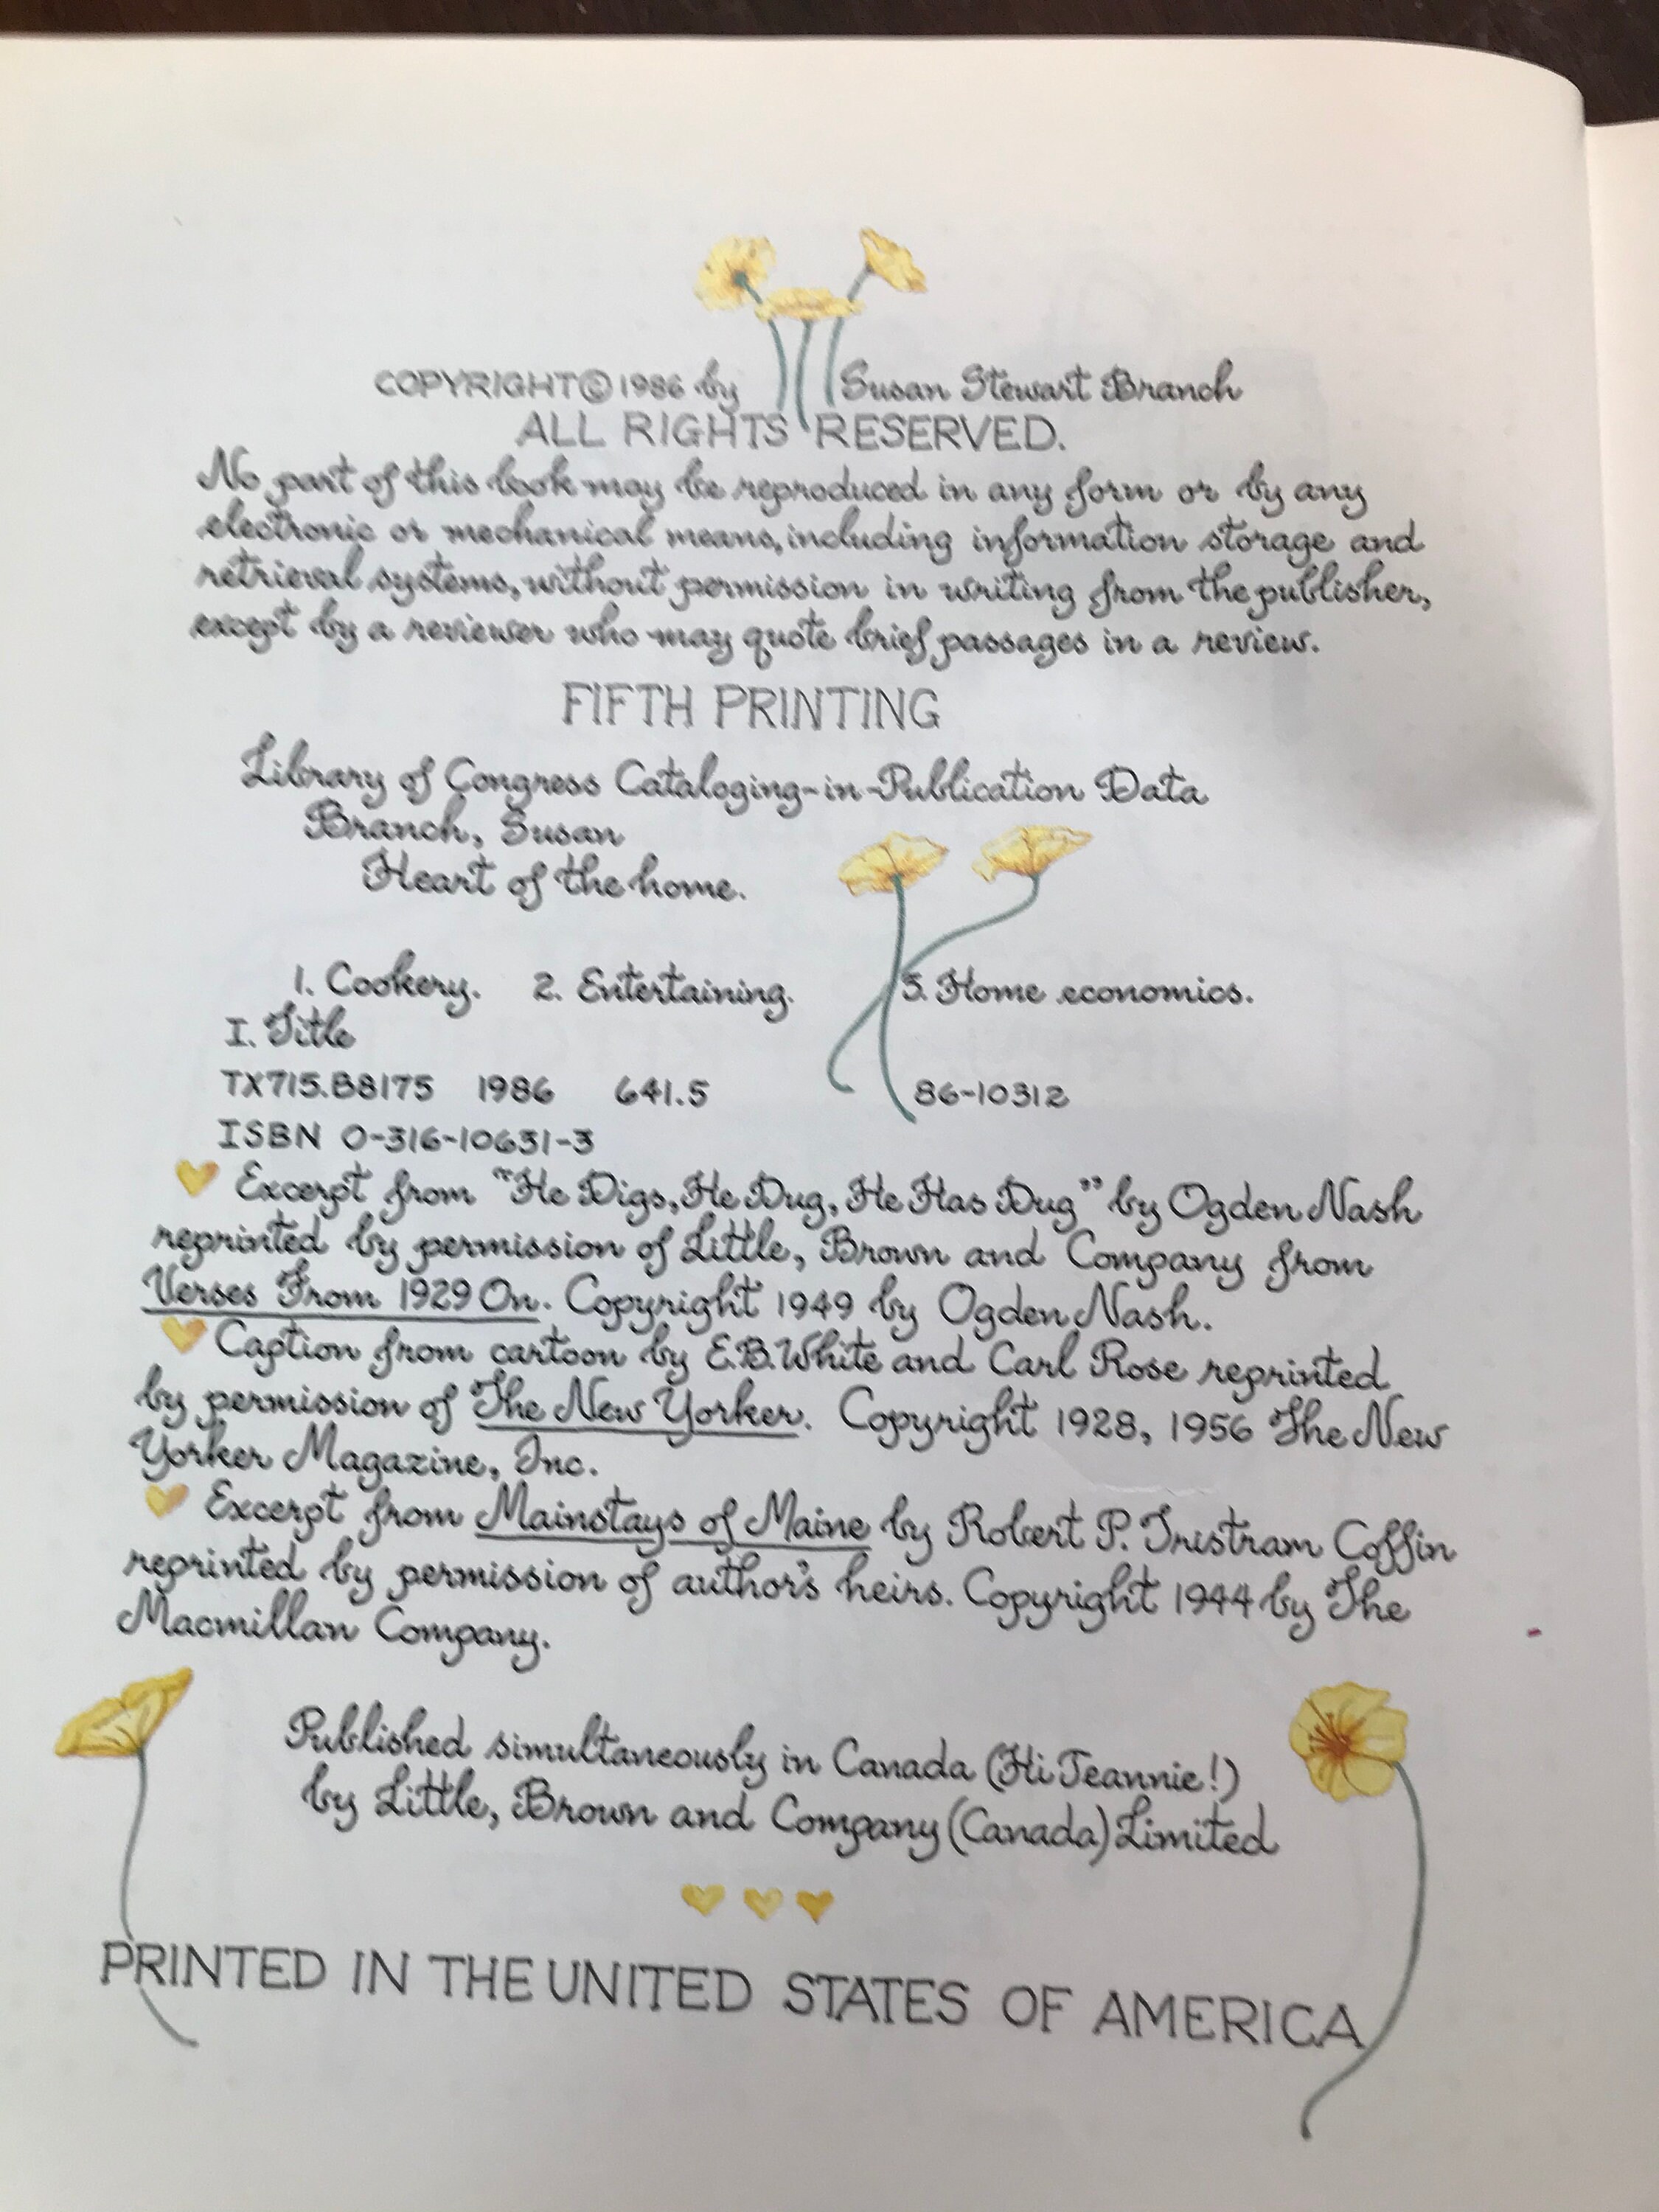 COPYRIGHT © 1986 by Susan Stewart Branch
ALL RIGHTS RESERVED.
No part of this book may be reproduced in any form or by any
electronic or mechanical means, including information storage and
retrieval systems, without permission in writing from the publisher,
except by a reviewer who may quote brief passages in a review.
FIFTH PRINTING
Library of Congress Cataloging-in-Publication Data
Branch, Susan
Heart of the home.
1. Cookery. 2. Entertaining. 3. Home economics.
I. Title
TX715.B8175 1986 641.5 86-10312
ISBN 0-316-10631-3
Excerpt from "He Digs, He Dug, He Has Dug" by Ogden Nash
reprinted by permission of Little, Brown and Company from
Verses From 1929 On. Copyright 1949 by Ogden Nash.
Caption from cartoon by E.B. White and Carl Rose reprinted
by permission of The New Yorker. Copyright 1928, 1956 The New
Yorker Magazine, Inc.
Excerpt from Mainstays of Maine by Robert P. Tristram Coffin
reprinted by permission of author's heirs. Copyright 1944 by The
Macmillan Company.
Published simultaneously in Canada (Hi Jeannie!)
by Little, Brown and Company (Canada) Limited
PRINTED IN THE UNITED STATES OF AMERICA